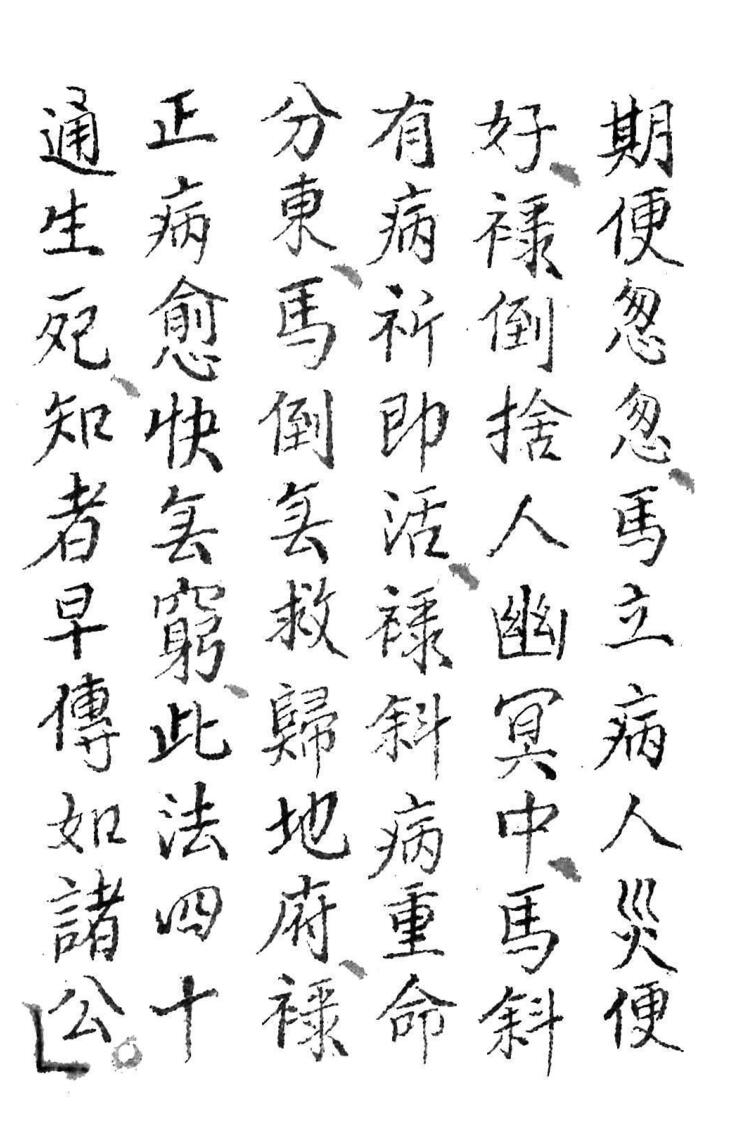 期便忽忽馬立病人災便
好祿倒捨人幽冥中馬斜
有病祈即活祿斜病重命
分東馬倒旡救歸地府祿
正病愈快旡窮此法四十
通生死知者早傳如諸公